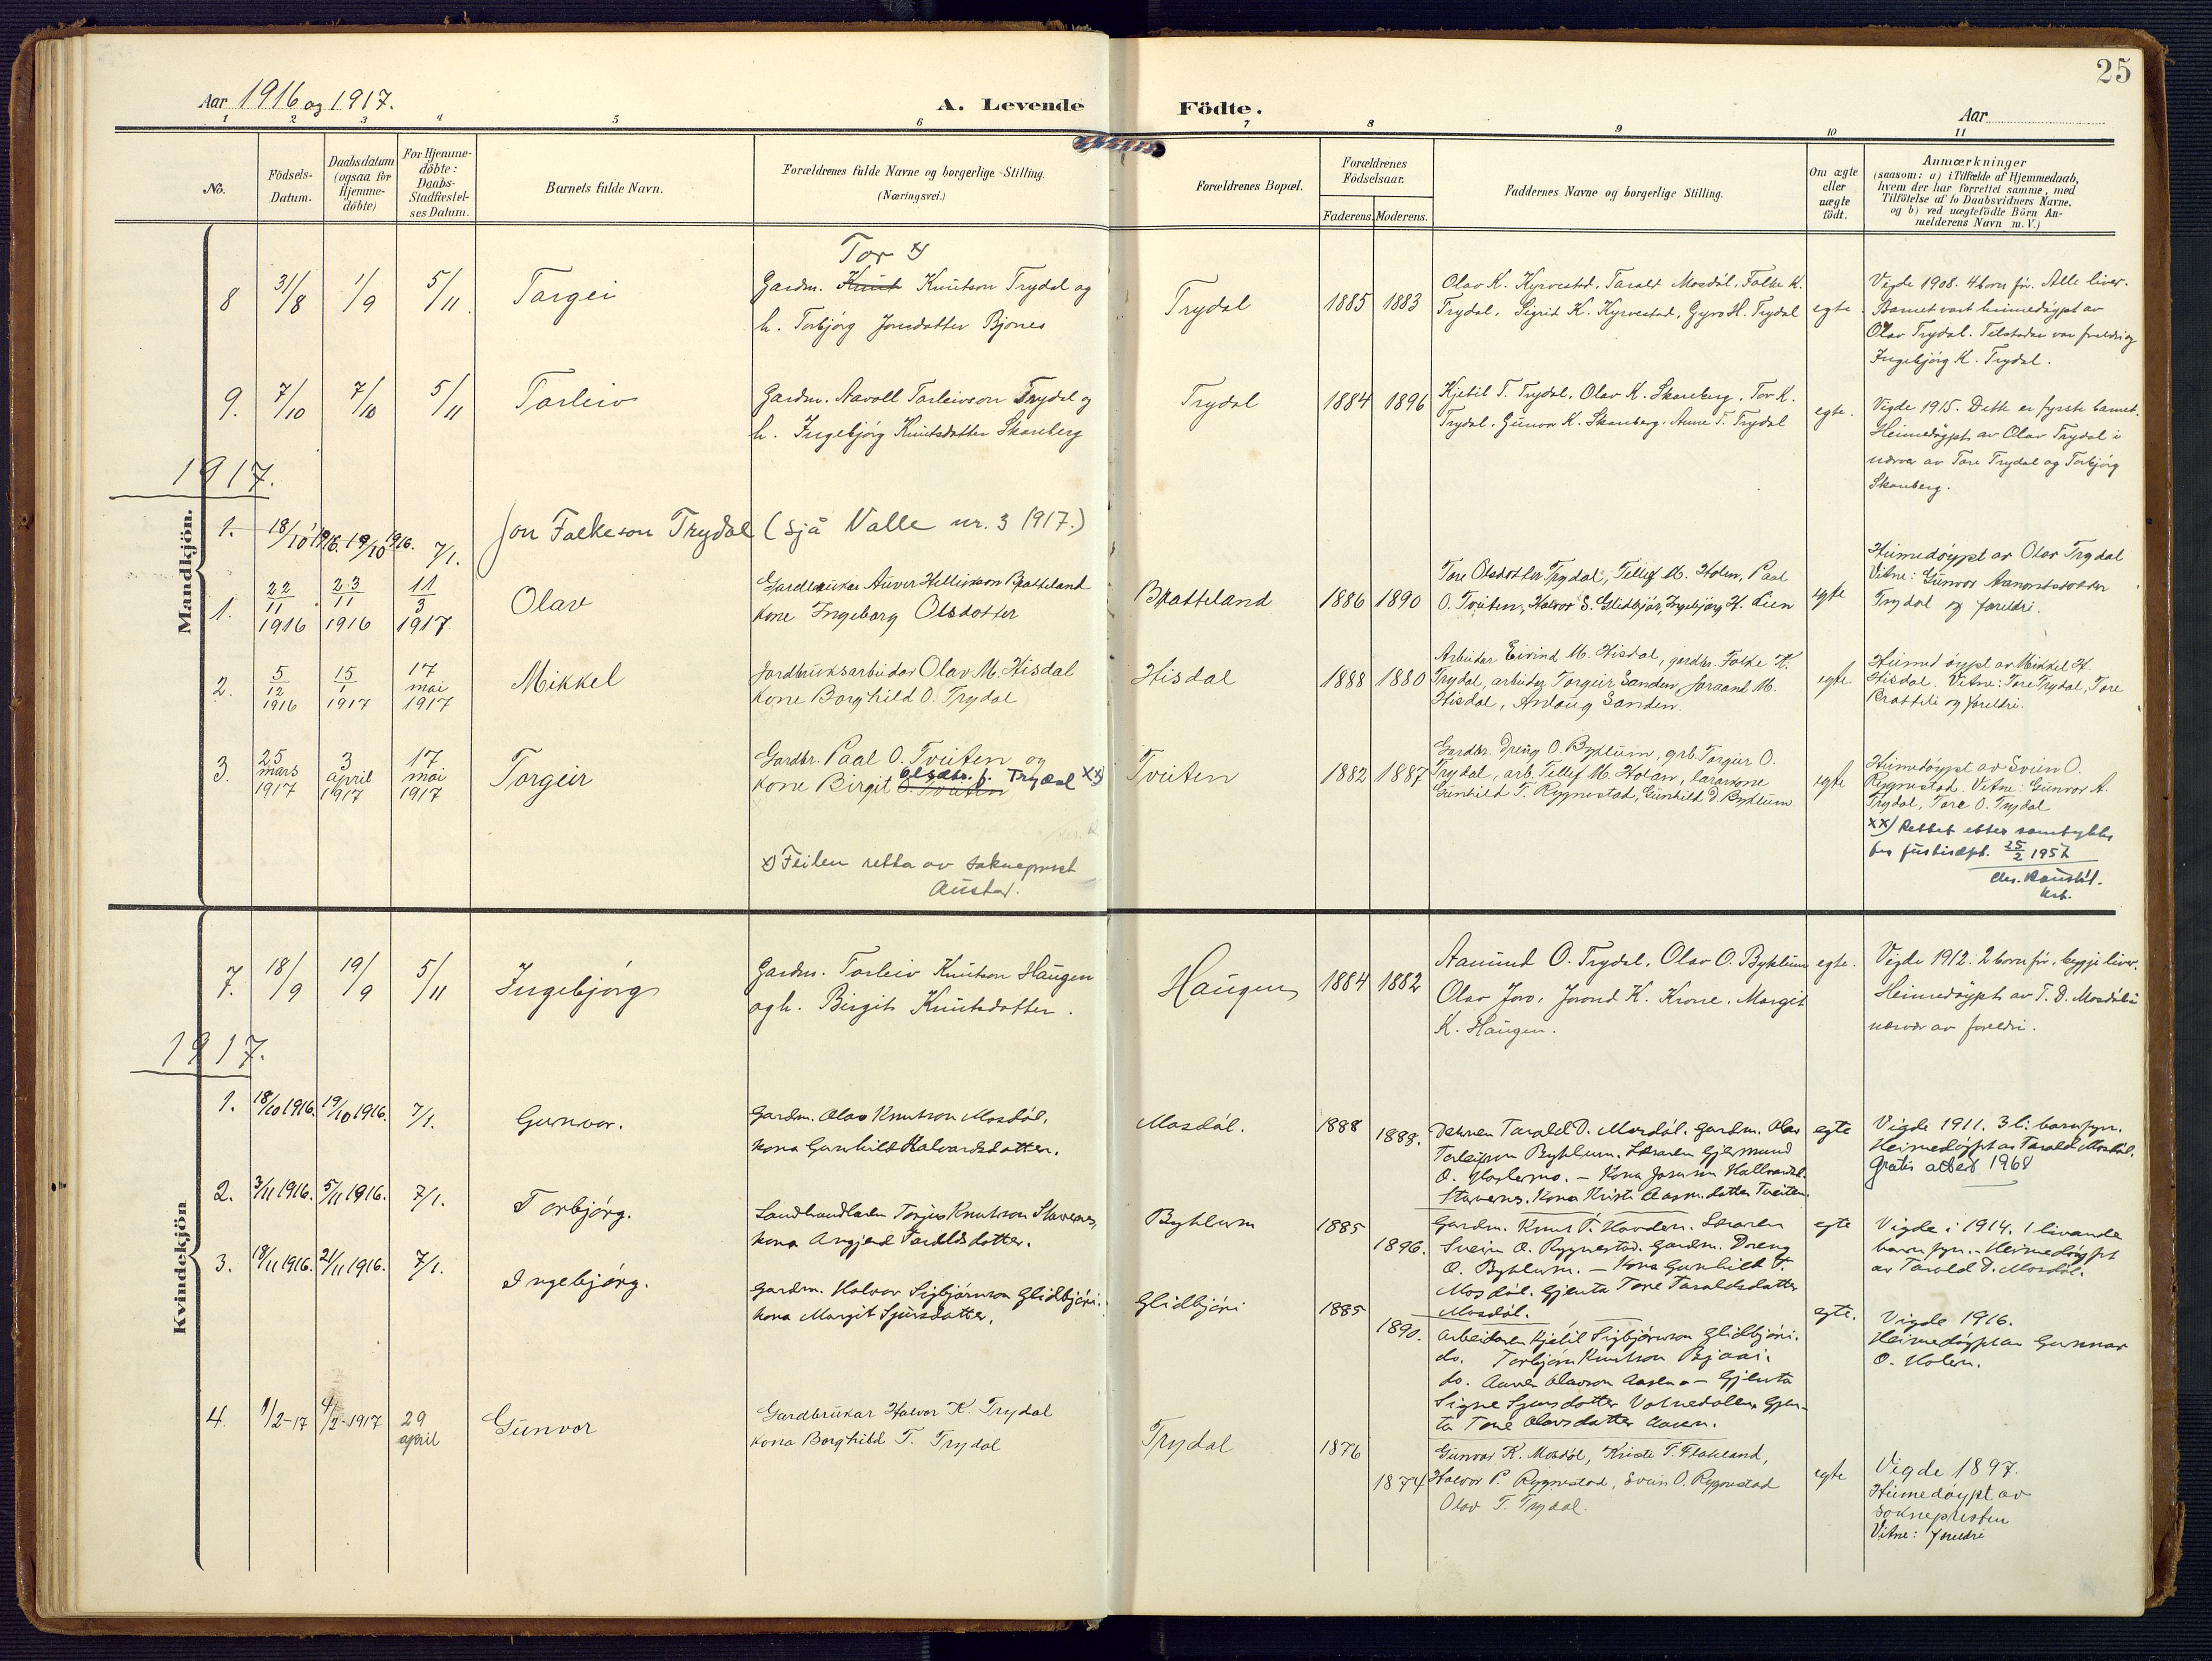 25
Aar 1916 og 1917.
A. Levende Födte.
Aar
1 2 3 4 5 6 7 8 9 10 11
No.
Födsels-
Datum.
Daabsdatum
(ogsaa for
Hjemme-
döbte)
For Hjemme-
döbte:
Daabs-
Stadfæstel-
ses Datum.
Barnets fulde Navn.
Forældrenes fulde Navne og borgerlige Stilling.
(Næringsvei.)
Forældrenes Bopæl.
Forældrenes
Födselsaar.
Faderens. Moderens.
Faddernes Navne og borgerlige Stilling.
Om ægte
eller
uægte
födt.
Anmærkninger
(saasom: a) i Tilfælde af Hjemmedaab,
hvem der har forrettet samme, med
Tilföielse af to Daabsvidners Navne,
og b) ved uægtefödte Börn An-
melderens Navn m. V.)
Mandkjön.
8 31/8 1/9 5/11 Torgei
Tor x)
Gardm. Knut Knutson Trydal og
h. Torbjörg Jonsdotter Bjones
Trydal 1885 1883
Olav K. Kyrvestad, Tarald Mosdöl, Falke K.
Trydal, Sigrid K. Kyrvestad, Gyro H. Trydal
egte
Vigde 1908. 4 born för. Alle liver.
Barnet vart heimedöypt av
Olav Trydal. Tilstades var foreldri og
Ingebjörg K. Trydal.
9. 7/10 7/10 5/11 Tarleiv
Gardm. Aavoll Tarleivson Trydal og
h. Ingebjörg Knutsdotter Skarberg
Trydal 1884 1896
Kjetil T. Trydal, Olav K. Skarberg, Tor K.
Trydal, Gunvor K. Skarberg, Anne T. Trydal
egte.
Vigde 1915. Dette er fyrste barnet.
Heimedöypt av Olav Trydal i
nærvær av Tore Trydal og Torbjörg
Skarberg.
1917.
1. 18/10 1916. 19/10 1916. 7/1. Jon Falkeson Trydal (sjå Valle nr. 3 1917.)
1. 22/11 1916 23/11 1916 11/3 1917 Olav
Gardbrukar Auver Hellikson Bratteland
kone Ingeborg Olsdotter
Bratteland 1886 1890
Tore Olsdotter Trydal, Tellef M. Holen, Paal
O. Tveiten, Halvor S. Glidbjör, Ingebjörg H. Lien
egte
Heimedöypt av Olav Trydal
Vitne: Gunvor Aanundsdotter
Trydal og foreldri.
2. 5/12 1916 15/1 1917 17 mai 1917 Mikkel
Jordbruksarbeidar Olav M. Hisdal
kone Borghild O. Trydal
Hisdal 1888 1880
Arbeidar Eivind M. Hisdal, gardbr. Folke K.
Trydal, arbeidar Torgeir Sanden, Joraand M.
Hisdal, Andaug Sanden.
egte
Heimedöypt av Mikkel H.
Hisdal. Vitne: Tore Trydal, Tore
Bratteli og foreldri.
3. 25 mars 1917 3 april 1917 17 mai 1917 Torgeir
Gardbr. Paal O. Tveiten og
kone Birgit O. Tveiten Olsdtr. f. Trydal xx)
Tveiten 1882 1887
Gardbr. Dreng O. Byklum, grb. Torgeir O.
Trydal, arb. Tellef M. Holen, lærarkone
Gunhild T. Rygnestad, Gunhild D. Byklum
egte
Heimedöypt av Svein O.
Rygnestad. Vitne: Gunvor A.
Trydal, Tore O. Trydal
xx) Rettet etter samtykke
fra justisdept. 25/2 1957
x) Feilen retta av sokneprest
Austad.
Kvindekjön
7. 18/9 19/9 5/11 Ingebjörg
Gardm. Torleiv Knutson Haugen
og h. Birgit Knutsdotter.
Haugen 1884 1882
Aamund O. Trydal, Olav O. Byklum
Olav Jore, Jorond K. Krone, Margit
K. Haugen.
egte.
Vigde 1912. 2 born för, begge liver.
Heimedöypt av T. D. Mosdöl i
nærvær av foreldri.
1917.
1. 18/10 1916. 19/10 1916. 7/1. Gunvor.
Gardm. Olav Knutson Mosdöl,
kona Gunhild Halvardsdotter.
Mosdöl. 1888 1888.
Tarald D. Mosdöl. Gardm. Olav
Torleivson Byklum. Læraren Gjermund
O. Hoslemo. – Kona Hallvardd.
Stavenes. Kona Kristi Aasm.dotter Tveiten.
egte
Vigde 1911. 3 li. barn fyrr.
Heimedöypt av Tarald Mosdöl.
Gratis attest 1968
2. 3/11 1916. 5/11 1916. 7/1. Torbjörg.
Landhandlaren Torjus Knutson Stavenes,
kona Angjerd Taraldsdotter.
Byklum 1885 1896.
Gardm. Knut T. Hovden. Læraren
Svein O. Rygnestad. Gardm. Dreng
O. Byklum. – Kona Gunhild T.
Mosdöl. Gjenta Tore Taraldsdotter
Mosdöl.
egte
Vigde i 1914. 1 livande
barn fyrr. – Heimedöypt
av Tarald D. Mosdöl.
3. 18/11 1916. 21/11 1916. 7/1. Ingebjörg.
Gardm. Halvor Sigbjörnson Glidbjöri.
kona Margit Sjursdotter.
Glidbjöri 1885 1890.
Arbeidaren Kjetil Sigbjörnson Glidbjöri.
do. Torbjörn Knutson Bjaai.
do. Olavson – Gjenta
Signe Sjursdotter Vatnedalen, Gjen-
ta Tone Olavsdotter
egte.
Vigde 1916.
Heimedöypt av Gunnar
O. Holen.
4. 1/2-17 4/2-1917 29 april Gunvor
Gardbrukar Halvor K. Trydal
kona Borghild T. Trydal
Trydal 1876 1874
Gunvor K. Mosdöl, Kristi T. Flateland,
Halvor P. Rygnestad, Svein O. Rygnestad
Olav T. Trydal.
egte
Vigde 1897.
Heimedöypt av
soknepresten
Vitne: foreldri